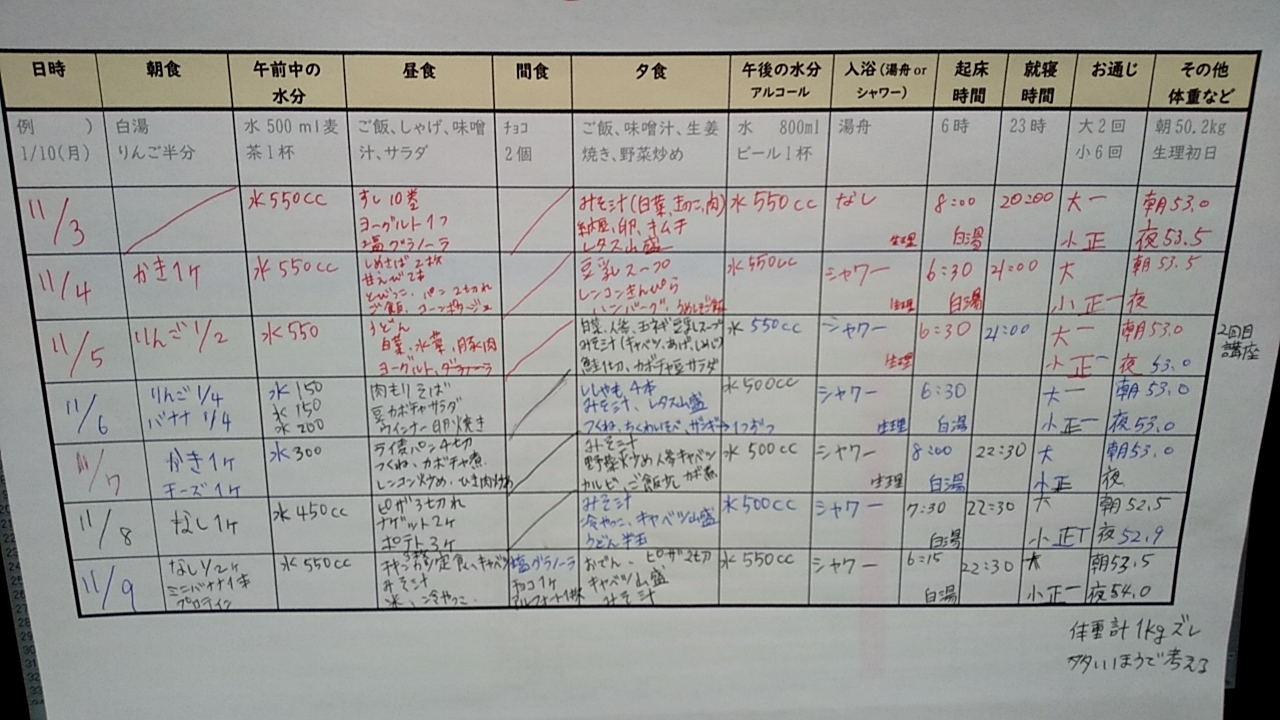 日時 朝食 午前中の水分 昼食 間食 夕食 午後の水分 アルコール 入浴(湯舟or シャワー) 起床時間 就寝時間 お通じ その他 体重など
例 ) 白湯 水500ml麦 ご飯、しゃげ、味噌 チョコ ご飯、味噌汁、生姜 水 800ml 湯舟 6時 23時 大2回 朝50.2kg
1/10(月) りんご半分 茶1杯 汁、サラダ 2個 焼き、野菜炒め ビール1杯 小6回 生理初日
11/3 水550cc すし10巻 みそ汁(白菜、きのこ、肉) 水550cc なし 8:00 20:00 大一 朝53.0
ヨーグルト1つ 納豆、卵、キムチ
塩グラノーラ レタス山盛 生理 白湯 小正 夜53.5
11/4 かき1ヶ 水550cc しめさば2枚 豆乳スープ 水550cc シャワー 6:30 21:00 大 朝53.5
甘えび2本
とびっこ、パン2切れ レンコンきんぴら
ご飯、コーンポタージュ ハンバーグ、うめしそご飯 生理 白湯 小正一 夜
11/5 りんご1/2 水550 うどん 白菜、人参、玉ネギ豆乳スープ 水550cc シャワー 6:30 21:00 大一 朝53.0
白菜、水菜、豚肉 みそ汁(キャベツ、あげ、しめじ)
ヨーグルト、グラノーラ 鮭1切、カボチャ豆サラダ 生理 小正一 夜53.0
2回目
講座
11/6 りんご1/4 水150 肉もりそば ししゃも4本 水500cc シャワー 6:30 大一 朝53.0
バナナ1/4 水150 豆カボチャサラダ みそ汁、レタス山盛
水200 ウインナー卵焼き つくね、ちくわいそべ、ザンギ1つずつ 生理 白湯 小正一 夜53.0
11/7 かき1ヶ 水300 ライ麦パン4切 みそ汁 水500cc シャワー 8:00 22:30 大 朝53.0
つくね、カボチャ煮 野菜炒め人参キャベツ
チーズ1ヶ レンコン炒め、ひき肉炒め カルビ、ご飯 生理 白湯 小正 夜
11/8 なし1ヶ 水450cc ピザ3切れ みそ汁 水500cc シャワー 7:30 22:30 大 朝52.5
ナゲット2ヶ 冷やっこ、キャベツ山盛
ポテト3ヶ うどん半玉 白湯 小正T 夜52.9
11/9 なし1/2ヶ 水550cc 定食、キャベツ 塩グラノーラ おでん、ピザ2切 水550cc シャワー 6:15 22:30 大 朝53.5
ミニバナナ1本 みそ汁 チョコ1ヶ キャベツ山盛
プロテイン 米、冷やっこ アルフォート みそ汁 白湯 小正一 夜54.0
体重計1kgズレ
多いほうで考える